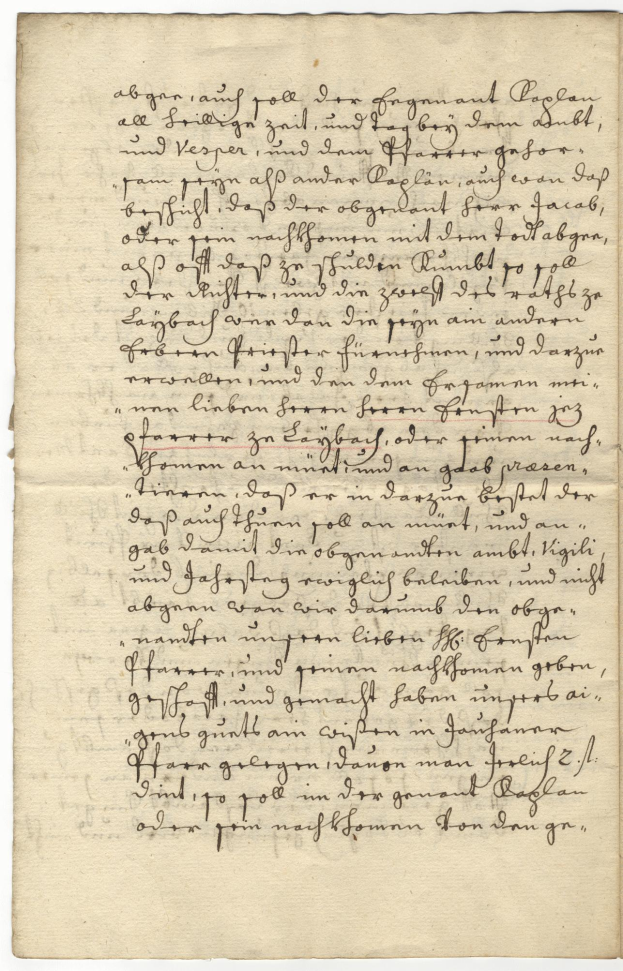 abgee, auch soll der Eegenant Kaplan
all heillige zeit, und tag bey dem ambt,
und Vesper, und dem Pfarrer gehor-
„sam seyn alß ander Kaplän, auch wan daß
beschicht, daß der obgenant herr Jacab,
oder sein nachkhomen mit dem todt abgee,
alß offt daß ze schulden kumbt so soll
der Richter, und die zwelff des raths ze
Laÿbach wer dan die seyn ain andern
Erbern Priester fürnehmen, und darzue
erwellen, und den dem Ersamen mei-
„nen lieben herrn herrn Ernsten jez
pfarrer ze Laybach, oder seinen nach-
„khomen an müet, und an gaab præsen-
„tieren, daß er in darzue bestet der
daß auch thuen soll an müet, und an-
gab damit die obgenandten ambt, Vigili,
und Jahrsteg ewiglich beleiben, und nicht
abgeen wan wir darumb den obge-
„nandten unsern lieben hh: Ernsten
Pfarrer, und seinen nachkhomen geben,
geschafft, und gemacht haben unsers ai-
„gens guets ain wißen in Jauchaner
Pfarr gelegen, dauon man Jerlich 2. f.
dint, so soll im der genant Kaplan
oder sein nachkhomen von den ge-